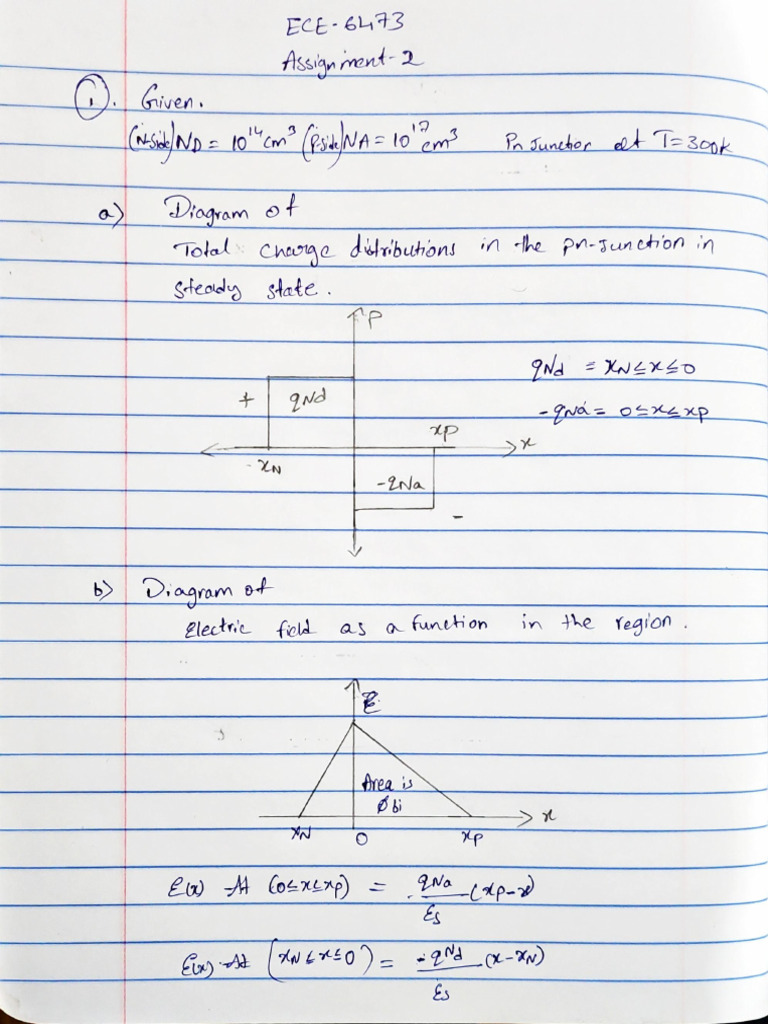 ECE-6473
Assignment-2
1. Given.
(N-side) ND = 10^14 cm^3 (P-side) NA = 10^17 cm^3 Pn Junction at T=300k
a) Diagram of
Total charge distributions in the pn-junction in
steady state.
ρ
qNd = xN≤x≤0
+ qNd
-qNa = 0≤x≤xp
xp
x
-xN
-qNa
-
b) Diagram of
Electric field as a function in the region.
E
Area is
Øbi
x
xN 0 xp
E(x) At (0≤x≤xp) = qNa/Es (xp-x)
E(x) At (xN≤x≤0) = -qNd/Es (x-xN)